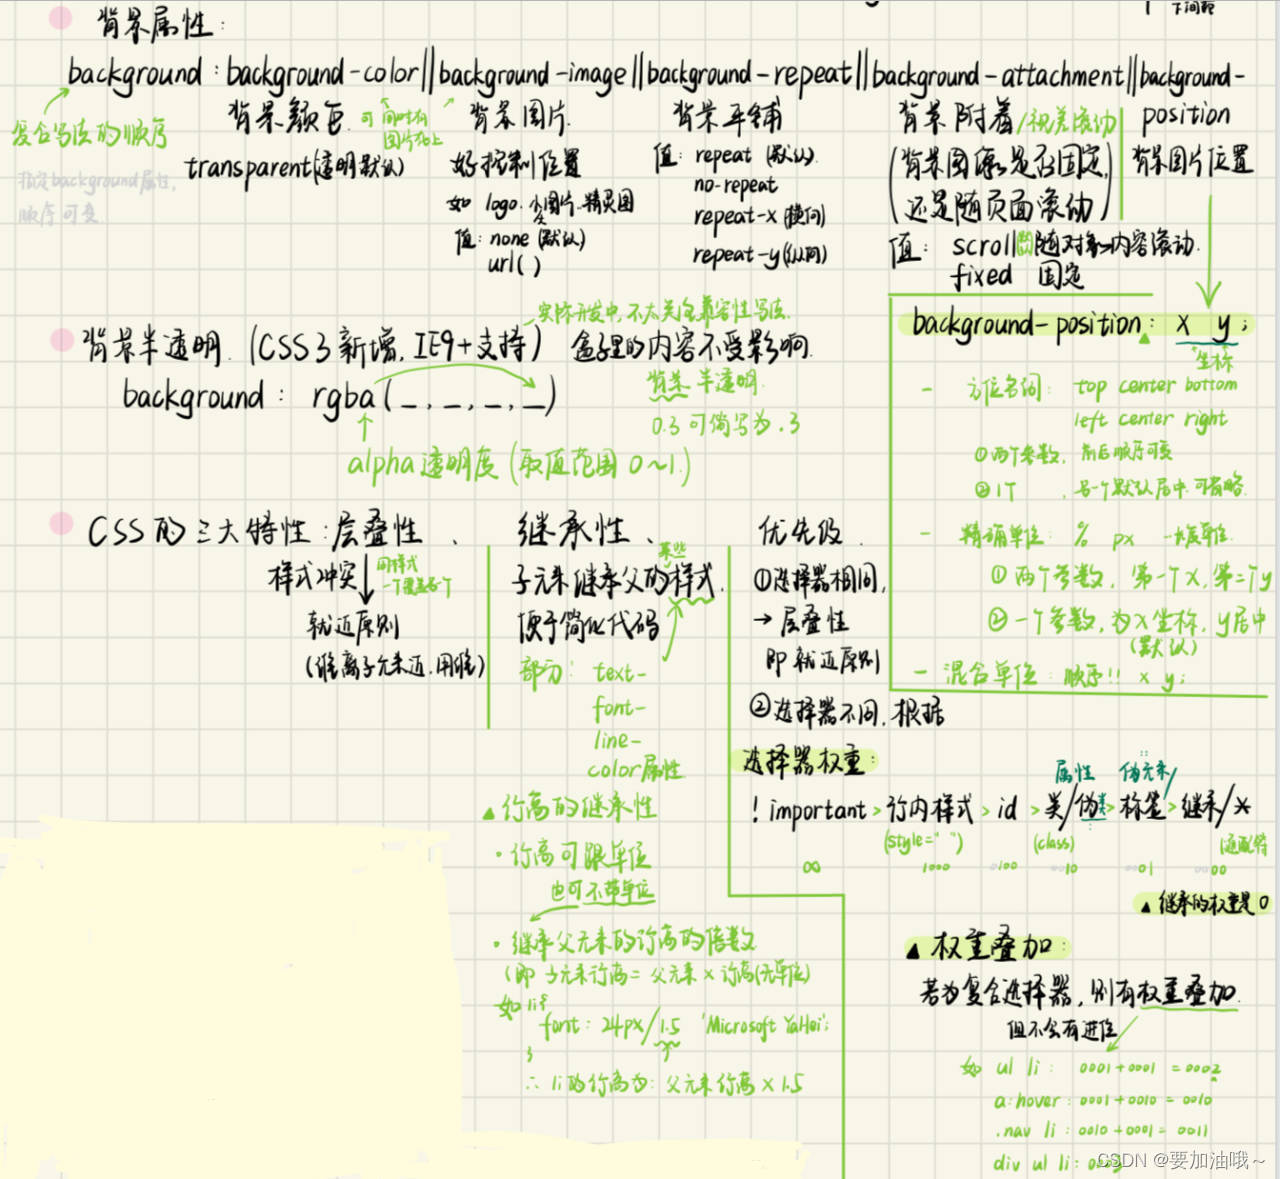 下间距
背景属性：
background：background-color||background-image||background-repeat||background-attachment||background-position
复合写法的顺序
指定background属性，
顺序可变
背景颜色
可同时有
图片在上
transparent(透明默认)
背景图片
好控制位置
如 logo.小图片.精灵图
值：none (默认)
url( )
背景平铺
值：repeat (默认)
no-repeat
repeat-x (横向)
repeat-y (纵向)
背景附着/视差滚动
(背景图像是否固定,
还是随页面滚动)
值：scroll 随对象内容滚动.
fixed 固定
背景图片位置
background-position：x y;
坐标
- 方位名词：top center bottom
left center right
①两个参数，前后顺序可变
②1个，另一个默认居中.可省略.
- 精确单位：% px 长度单位.
①两个参数，第一个x,第二个y
②一个参数,为x坐标,y居中
(默认)
- 混合单位：顺序!! x y;
背景半透明.(CSS3新增,IE9+支持) 盒子里的内容不受影响.
实际开发中,不太关注兼容性写法.
background： rgba(_,_,_,_)
背景半透明.
0.3可简写为.3
alpha透明度(取值范围0~1.)
CSS的三大特性：层叠性、继承性、优先级
样式冲突
同样式
一个覆盖另一个
就近原则
(谁离子元素近,用谁)
某些
子元素继承父的样式.
便于简化代码
部分：text-
font-
line-
color属性
▲行高的继承性
·行高可跟单位
也可不带单位
·继承父元素的行高的倍数
(即 子元素行高=父元素×行高(无单位)
如 li{
font：24px/1.5 'Microsoft YaHei';
}
∴ li的行高为：父元素行高×1.5
①选择器相同,
→层叠性
即就近原则
②选择器不同,根据
选择器权重：
属性 伪元素/
!important>行内样式>id>类/伪类>标签>继承/*
(style=" ") (class) 通配符
∞ 1000 0100 0010 0001 0000
▲继承的权重是0
▲权重叠加：
若为复合选择器,则有权重叠加.
但不会有进位
如 ul li： 0001+0001 =0002
a:hover：0001+0010=0010
.nav li：0010+0001=0011
div ul li：0003
CSDN @要加油哦~